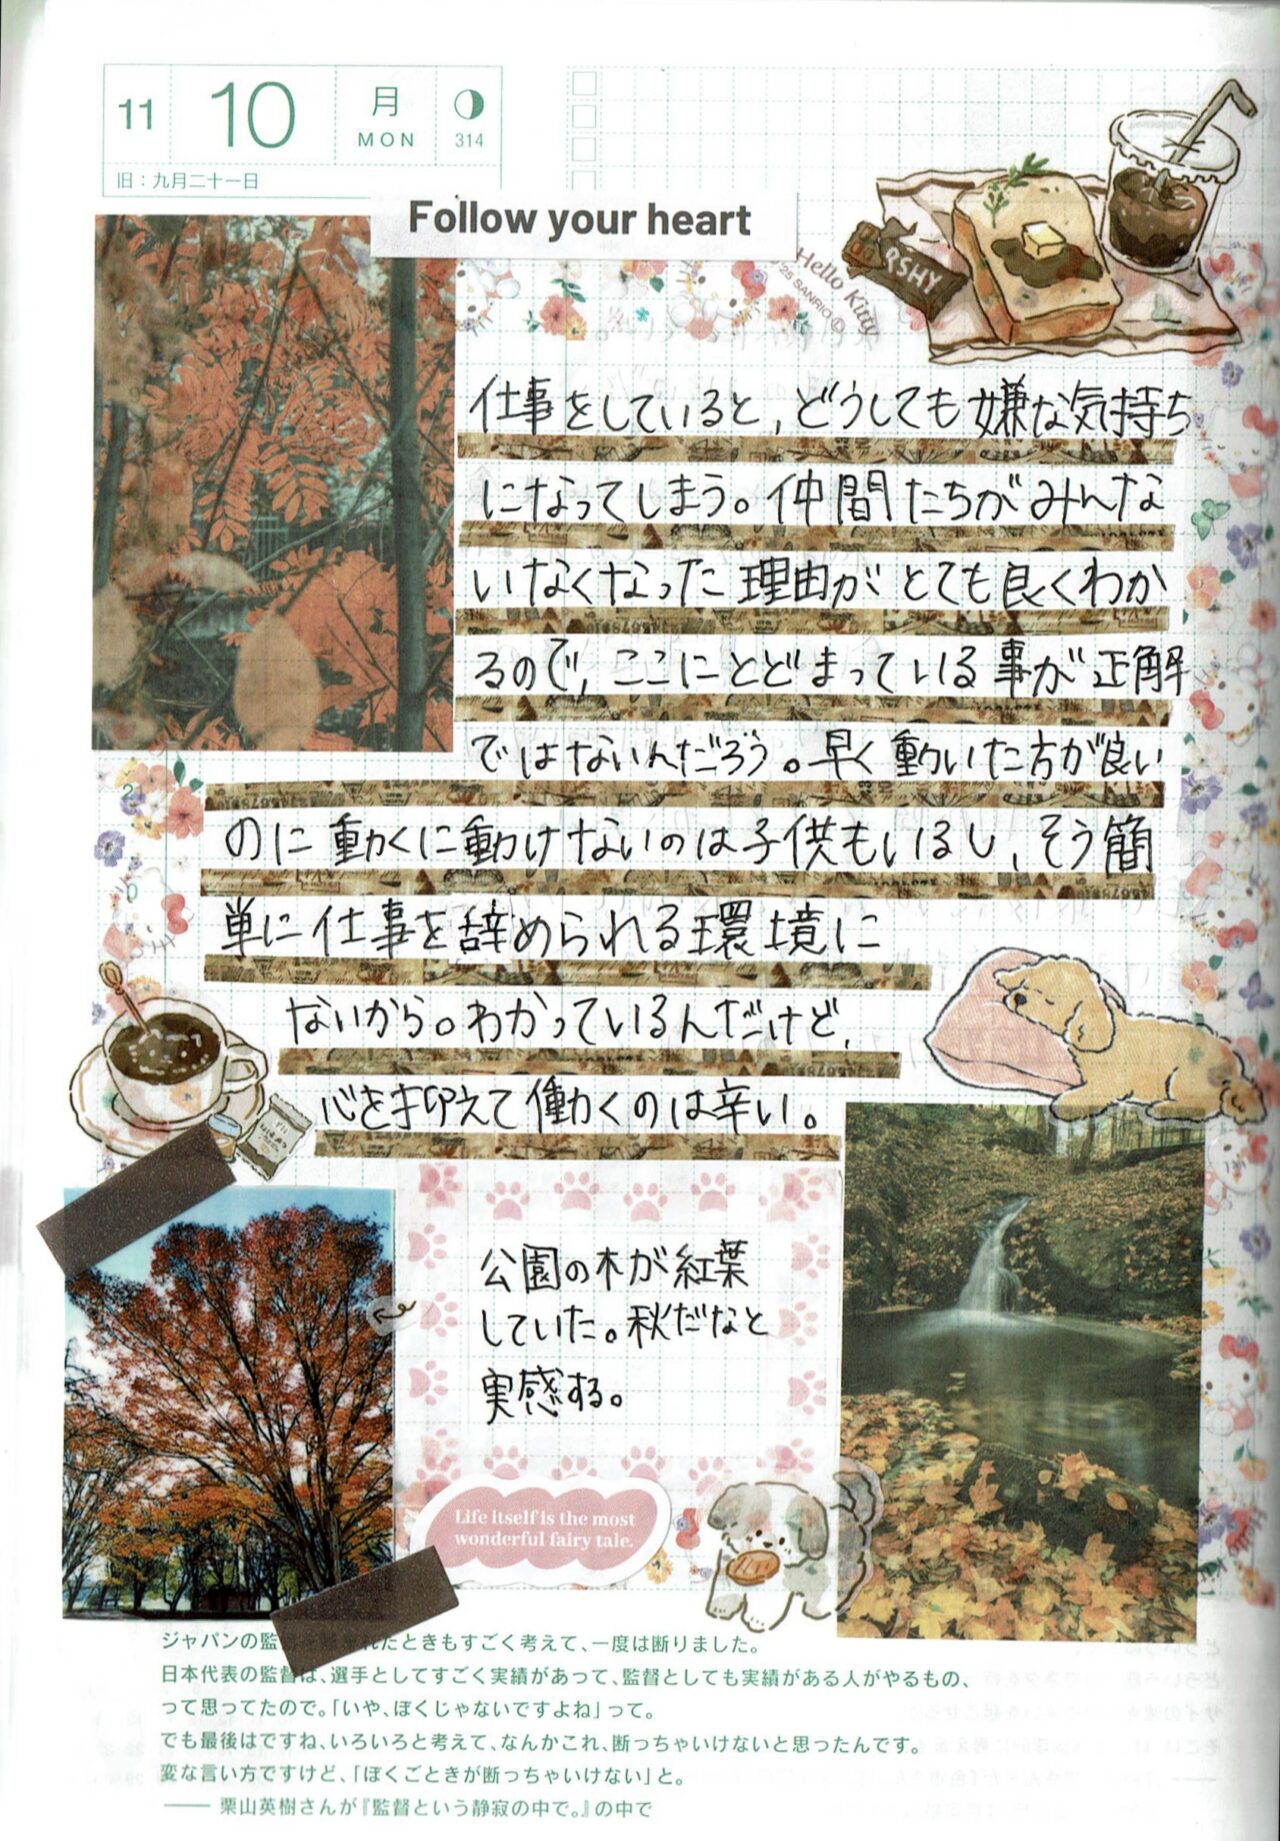 11 10 月 MON 314
旧：九月二十一日
Follow your heart
Hello Kitty
'25 SANRIO ©
RSHY
仕事をしていると、どうしても嫌な気持ち
になってしまう。仲間たちがみんな
いなくなった理由がとても良くわか
るので、ここにとどまっている事が正解
ではないんだろう。早く動いた方が良い
のに動くに動けないのは子供もいるし、そう簡
単に仕事を辞められる環境に
ないから。わかっているんだけど、
心を抑えて働くのは辛い。
公園の木が紅葉
していた。秋だなと
実感する。
Life itself is the most
wonderful fairy tale.
ジャパンの監 れたときもすごく考えて、一度は断りました。
日本代表の監督は、選手としてすごく実績があって、監督としても実績がある人がやるもの、
って思ってたので。「いや、ぼくじゃないですよね」って。
でも最後はですね、いろいろと考えて、なんかこれ、断っちゃいけないと思ったんです。
変な言い方ですけど、「ぼくごときが断っちゃいけない」と。
―― 栗山英樹さんが『監督という静寂の中で。』の中で